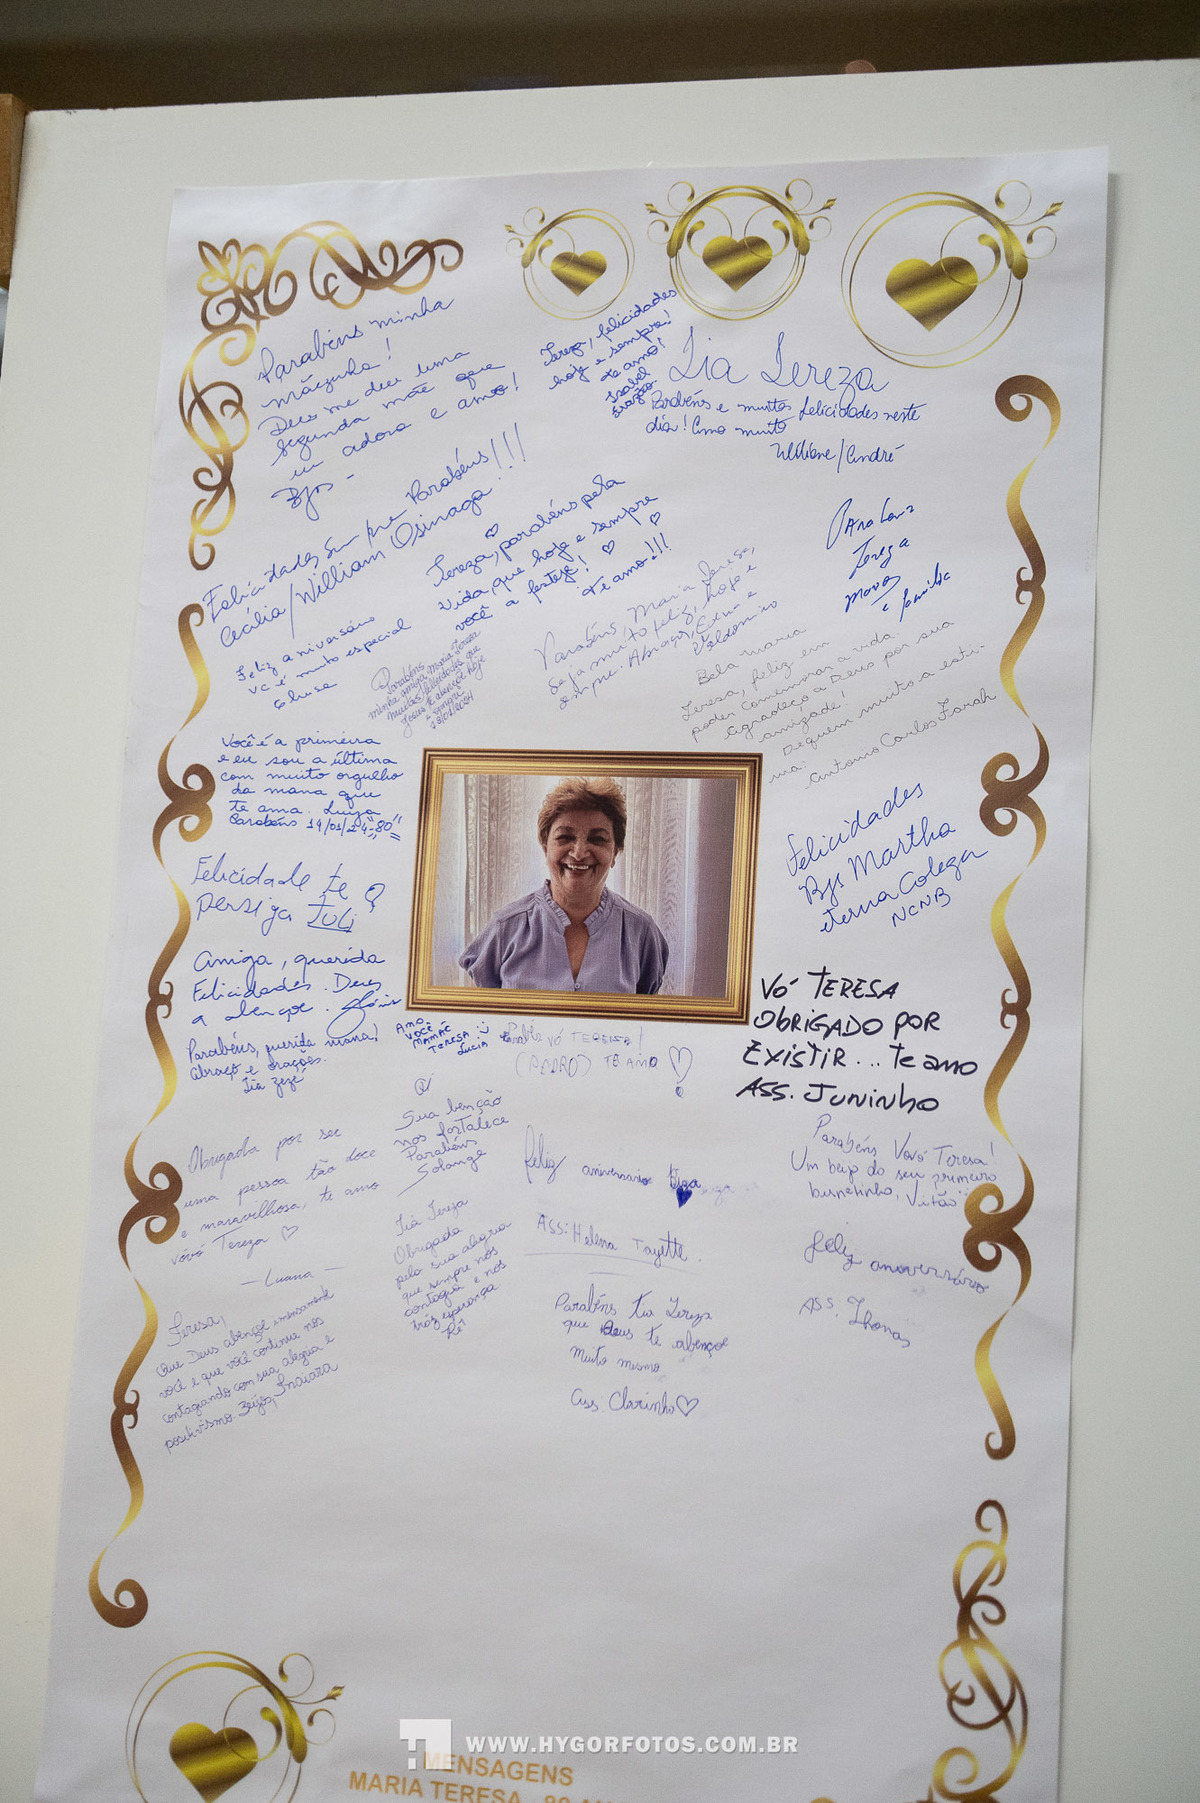 Parabéns minha
mãezinha!
Deus me deu uma
segunda mãe que
eu adoro e amo!
Bjos -
Tereza, felicidades
hoje e sempre!
te amo!
Isabel
Tia Tereza
Parabéns e muitas felicidades neste
dia! Amo muito
Williane/André
Felicidades sempre Parabéns!!!
Cecília/William Osinaga
Tereza, parabéns pela
vida, que hoje e sempre
você a festeje!
te amo!!!
Ana Lara
Tereza
e família
Feliz aniversário
vc é muito especial
Parabéns, Maria Teresa,
seja muito feliz, hoje e
sempre. Abraços,
Valdomiro
Parabéns
minha amiga Maria Tereza
muitas felicidades que
Jesus te abençoe hoje
e sempre
Bela maria
Teresa, feliz em
poder comemorar a vida.
Agradeço a Deus por sua
amizade!
De quem muito a esti-
ma:
Antonio Carlos Farah
Você é a primeira
e eu sou a última
com muito orgulho
da mana que
te ama. Luiza
Parabéns 14/01/24 "80"
Felicidades
Bjs Martha
eterna Colega
NCNB
Felicidade te
persiga Juli
Amiga, querida
Felicidades. Deus
a abençoe.
Parabéns, querida mana!
Abraço e orações.
Tia Zezé
AMO
VOCÊ
MAMÃE
TERESA
LUCIA
VÓ TEREISA!
(PEDRO) TE AMO
VÓ TERESA
OBRIGADO POR
EXISTIR... te amo
ASS. JUNINHO
Sua benção
nos fortalece
Parabéns
Solange
Obrigada por ser
uma pessoa tão doce
e maravilhosa, te amo
vóvó Tereza
- Luana -
feliz aniversario
ASS: Helena Tayette.
Parabéns Vovó Teresa!
Um beijo do seu primeiro
bisnetinho, Vitão
Feliz
aniverssário
ASS. Thomas
Tia Tereza
Obrigada
pela sua alegria
que sempre nos
contagia e nos
traz esperança
Lê
Teresa,
Que Deus abençoe imensamente
você e que você continue nos
contagiando com sua alegria e
positivismo. Beijos, Inaiara
Parabéns tia Tereza
que Deus te abençoe
muito mesmo
Ass. Clarinha
WWW.HYGORFOTOS.COM.BR
MENSAGENS
MARIA TERESA - 80